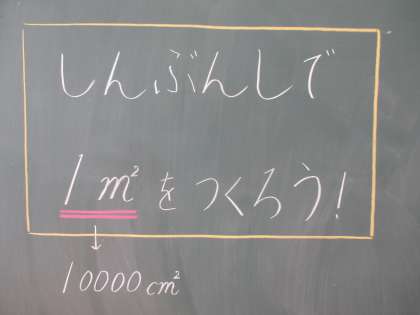 しんぶんしで
1m²をつくろう!
↓
10000cm²